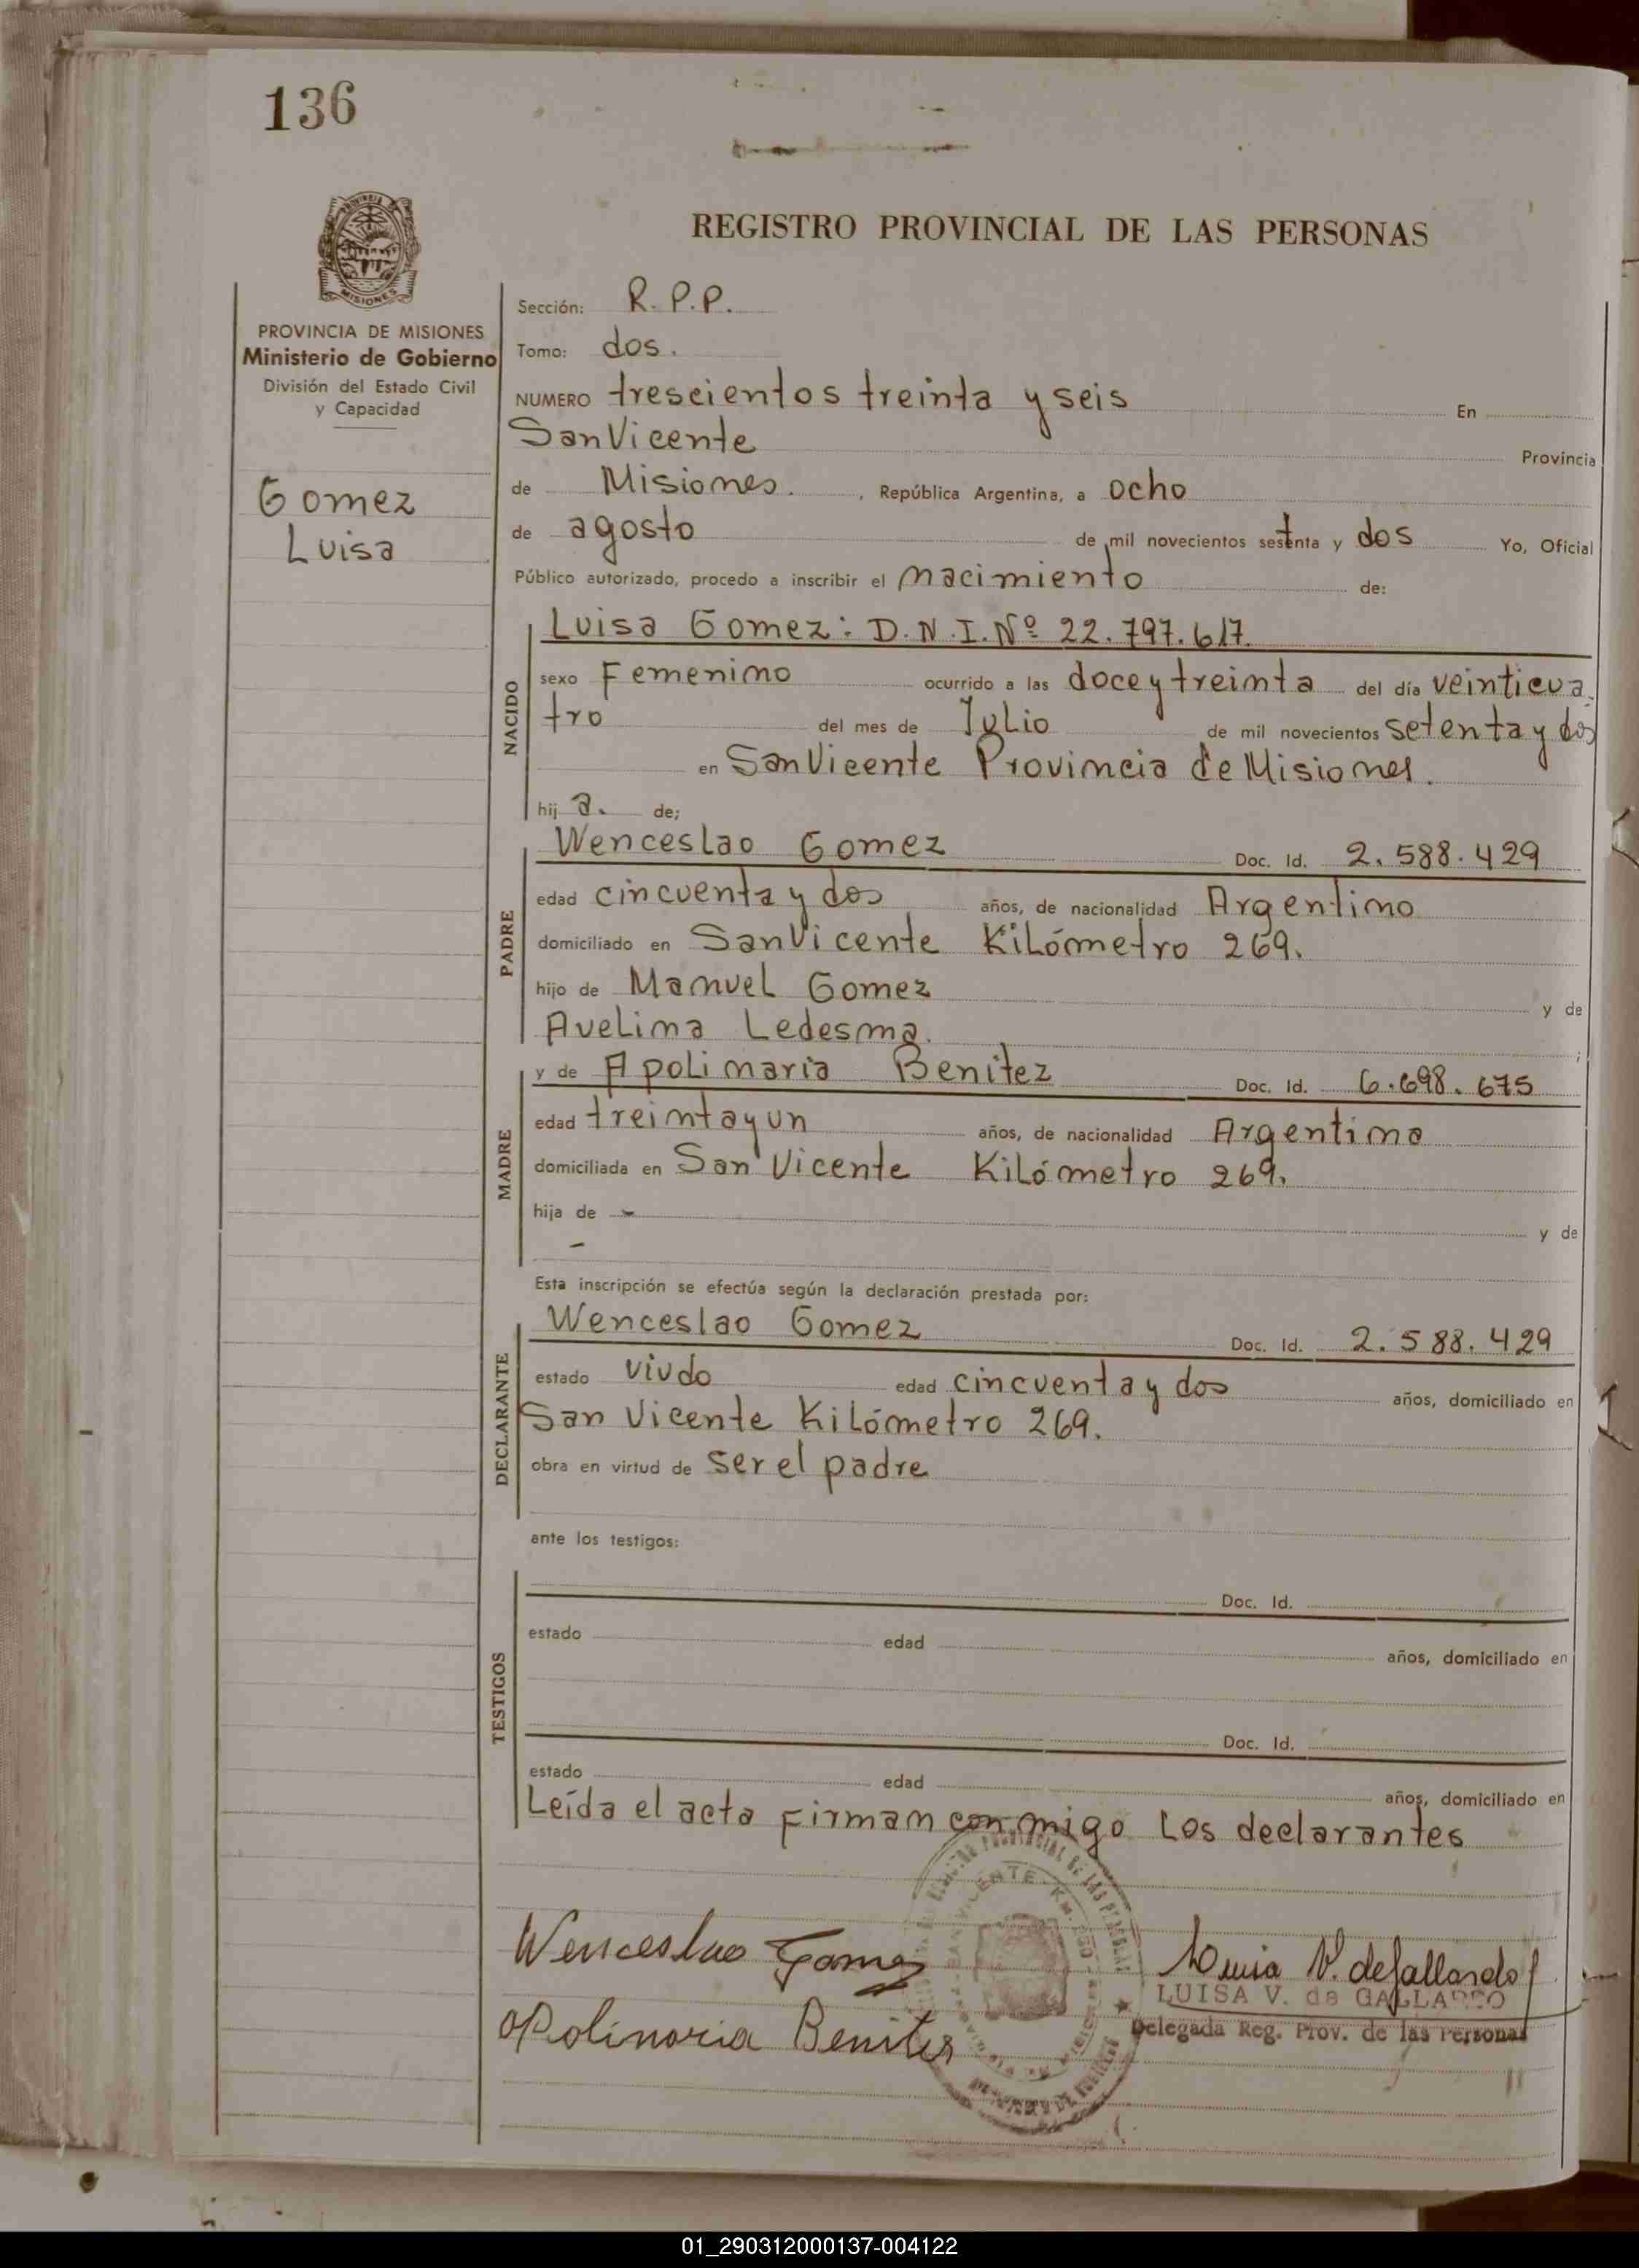 136
REGISTRO PROVINCIAL DE LAS PERSONAS
MISIONES
PROVINCIA DE MISIONES
Ministerio de Gobierno
División del Estado Civil
y Capacidad
Gomez
Luisa
Sección: R.P.P.
Tomo: dos.
NUMERO trescientos treinta y seis En
San Vicente Provincia
de Misiones. , República Argentina, a ocho
de agosto de mil novecientos setenta y dos Yo, Oficial
Público autorizado, procedo a inscribir el nacimiento de:
Luisa Gomez: D.N.I. Nº 22.797.617.
NACIDO
sexo Femenino ocurrido a las doce y treinta del día veinticua
tro del mes de Julio de mil novecientos setenta y dos
en San Vicente Provincia de Misiones.
hij a. de;
PADRE
Wenceslao Gomez Doc. Id. 2.588.429
edad cincuenta y dos años, de nacionalidad Argentino
domiciliado en San Vicente Kilómetro 269.
hijo de Manuel Gomez y de
Avelina Ledesma. ;
MADRE
y de Apolinaria Benitez Doc. Id. 6.698.675
edad treinta y un años, de nacionalidad Argentina
domiciliada en San Vicente Kilómetro 269.
hija de - y de
-
Esta inscripción se efectúa según la declaración prestada por:
DECLARANTE
Wenceslao Gomez Doc. Id. 2.588.429
estado viudo edad cincuenta y dos años, domiciliado en
San Vicente Kilómetro 269.
obra en virtud de ser el padre
ante los testigos:
TESTIGOS
Doc. Id.
estado edad años, domiciliado en
Doc. Id.
estado edad años, domiciliado en
Leída el acta firman conmigo los declarantes
Wenceslao Gomez
Luisa V. de Gallardo
LUISA V. de GALLARDO
Delegada Reg. Prov. de las Personas
Apolinaria Benitez
01_290312000137-004122